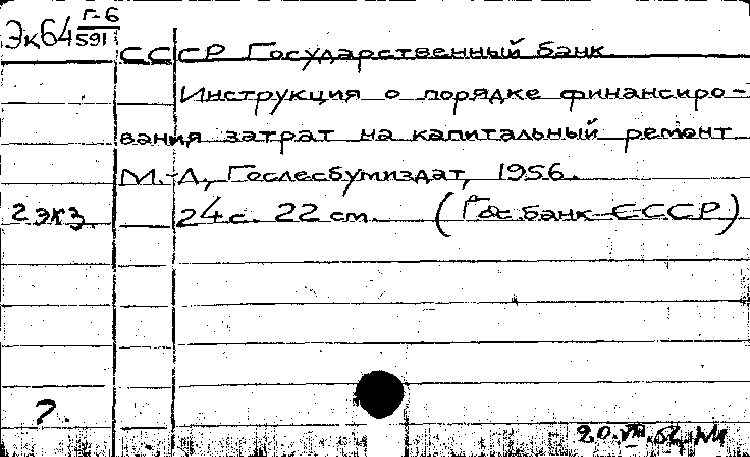 Эк64 Г-6
591
СССР Государственный банк
Инструкция о порядке финансиро-
вания затрат на капитальный ремонт
М.-Л., Гослесбумиздат, 1956.
2 экз. 24 с. 22 см. (Гос. банк СССР)
?.
20.VIII.